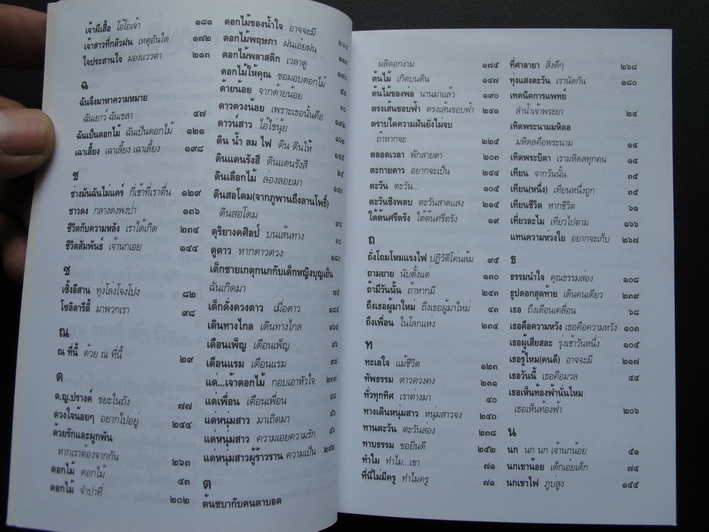 เจ้าผีเสื้อ โอ้โอเจ้า ๑๘๑
เจ้าสาวที่กลัวฝน เหตุอันใด ๑๗๒
ใจประสานใจ มองแววตา ๒๑๓
ฉ
ฉันจึงมาหาความหมาย
ฉันเยาว์ ฉันเขลา ๔๗
ฉันเป็นดอกไม้ ฉันเป็นดอกไม้ ๑๒๑
เฉาเลี้ยง เฉาเลี้ยง เฉาเลี้ยง ๑๙๘
ช
ช่างมันฉันไม่แคร์ ก็เช้าที่เราตื่น ๑๒๙
ชาวดง กลางดงพงป่า ๑๓๖
ชีวิตกับความหลัง เราได้เกิด ๒๓๔
ชีวิตสัมพันธ์ เจ้านกเอย ๑๔๔
ซ
เซิ้งอีสาน ทุ่งโล่งโจงโปง ๘๒
โซลิดาริตี้ มาพวกเรา ๙๘
ณ
ณ ที่นี้ ด้วย ณ ที่นี้ ๒๙
ด
ด.ญ.ปรางค์ ขยะในถัง ๗๗
ดวงใจน้อยๆ อยากไปอยู่ ๒๔๔
ด้วยรักและผูกพัน
หากเราต้องจากกัน ๒๖๓
ดอกไม้ ดอกไม้ ๔๓
ดอกไม้ จำปาที่ ๒๐๒
ดอกไม้ของน้ำใจ อาจจะมี
ดอกไม้พฤษภา ฝนเอ๋ยฝน
ดอกไม้พลาสติก เวลาดู
ดอกไม้ให้คุณ ขอมอบดอกไม้
ด้ายน้อย จากด้ายน้อย
ดาวดวงน้อย เพราะเธอนั้นคือ
ดาวน์สาว ไอ้ไข่นุ้ย
ดิน น้ำ ลม ไฟ ดิน ดินให้
ดินแดนรังสี ดินแดนรังสี
ดินเลือกไม้ ล่องลอยมา
ดินสอโดม(จากภูพานถึงลานโพธิ์)
ดินสอโดม
ดุริยางคศิลป์ บนเส้นทาง
ดูดาว หากดาวดวง
เด็กชายเกตุกนกกับเด็กหญิงบุญเย็น
ฉันเกิดมา
เด็กดั่งดวงดาว เมื่อดาว
เดินทางไกล เดินทางไกล
เดือนเพ็ญ เดือนเพ็ญ
เดือนแรม เดือนแรม
แด่...เจ้าดอกไม้ กอบเอาหัวใจ
แด่เพื่อน เตือนเพื่อน
แด่หนุ่มสาว มาเถิดมา
แด่หนุ่มสาว ความเอยความรัก
แด่หนุ่มสาวผู้ร้าวราน ความเป็น
ต
ต้นชบากับคนตาบอด
ผลิดอกงาม ๑๗๕
ต้นไม้ เกิดบนดิน ๑๔๗
ต้นไม้ของพ่อ นานมาแล้ว ๑๙๐
ตรงเส้นขอบฟ้า ตรงเส้นขอบฟ้า ๒๔๑
ตราบใดความฝันยังไม่จบ
ถ้าหากจะ ๒๔๐
ตลอดเวลา พักสายตา ๒๐๓
ตะกายดาว อยากจะเป็น ๒๔๔
ตะวัน ตะวัน..
ตะวันชิงพลบ ตะวันสาดแสง
ใต้ต้นศรีตรัง ใต้ต้นศรีตรัง ๑๙
ถ
ถั่งโถมโหมแรงไฟ ปฏิวัติโค่นล้ม ๙๕
ถามยาย นับตั้งแต่ ๑๓๐
ถ้ามีวันนั้น ถ้าหากมี ๒๔๓
ถึงเธอผู้มาใหม่ ถึงเธอผู้มาใหม่ ๒๔๓
ถึงเพื่อน ในโลกแห่ง ๒๓๔
ท
ทะเลใจ แม้ชีวิต ๑๒๓
ทัพธรรม ดาวดวงคง ๒๓๐
ทั่วทุกทิศ เราต่างมา ๔๐
ทางเดินหนุ่มสาว หนุ่มสาวจง ๒๔๐
ทานตะวัน ตะวันสอง ๒๓๘
ทาบธรรม ขอยินดี ๒๔๒
ทำไม ทำไม...เขา ๗๑
ที่นี่ไม่มีครู ทำไมครู ๗๑
ที่ศาลายา สิ่งดีๆ ๒๖๘
ทุ่งแสงตะวัน เรานัดกัน ๑๘๐
เทคนิคการแพทย์
ลำน้ำเจ้าพระยา
เทิดพระนามมหิดล
มหิดลคือพระนาม ๑๔
เทิดพระบิดา เรามหิดลทุกคน ๑๔
เทียน จากวันนั้น ๓๔
เทียน(หนึ่ง) เทียนหนึ่งถูก ๓๔
เทียนชีวิต หากชีวิต ๖๑
เที่ยวละไม เที่ยวไปตาม ๑๖๖
แทนความห่วงใย อยากจะเก็บ ๒๖๗
ธ
ธรรมนำใจ คุณธรรมส่อง ๑๐๘
ธูปดอกสุดท้าย เดินคนเดียว ๒๓๙
เธอ ถึงเดือนเคลื่อน ๖๘
เธอคือความหวัง เธอคือความหวัง ๑๐๓
เธอผู้เสียสละ รุ่งเช้าวันหนึ่ง
เธอรู้ไหม(คนดี) อาจจะมี ๒๑๗
เธอวันนี้ เธอคือมวล ๔๔
เธอเห็นท้องฟ้านั่นไหม
เธอเห็นท้องฟ้า ๒๐๖
น
นก นก นก เจ้านกน้อย ๕๑
นกเขาน้อย เด็กเอ๋ยเด็ก ๗๔
นกเขาไฟ ภูบสูง ๑๕๕